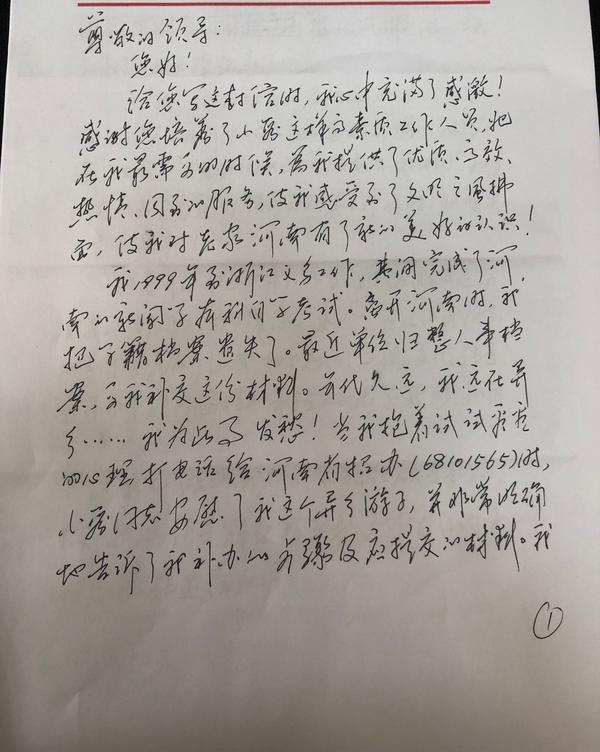 尊敬的领导：
您好！
给您写这封信时，我心中充满了感激！
感谢您培养了小蔡这样高素质工作人员，她
在我最需要的时候，为我提供了优质、高效、
热情、周到的服务，使我感受到了文明之风拂
面，使我对老家河南有了新的美好的认识！
我1999年到浙江义乌工作，其间完成了河
南的新闻学本科自学考试。离开河南时，我
把学籍档案遗失了。最近单位归整人事档
案，要我补交这份材料。年代久远，我远在异
乡……我为此事发愁！当我抱着试试看
的心理打电话给河南省招办(68101565)时，
小蔡同志安慰了我这个异乡游子，并非常明确
地告诉了我补办的步骤及应提交的材料。我
①